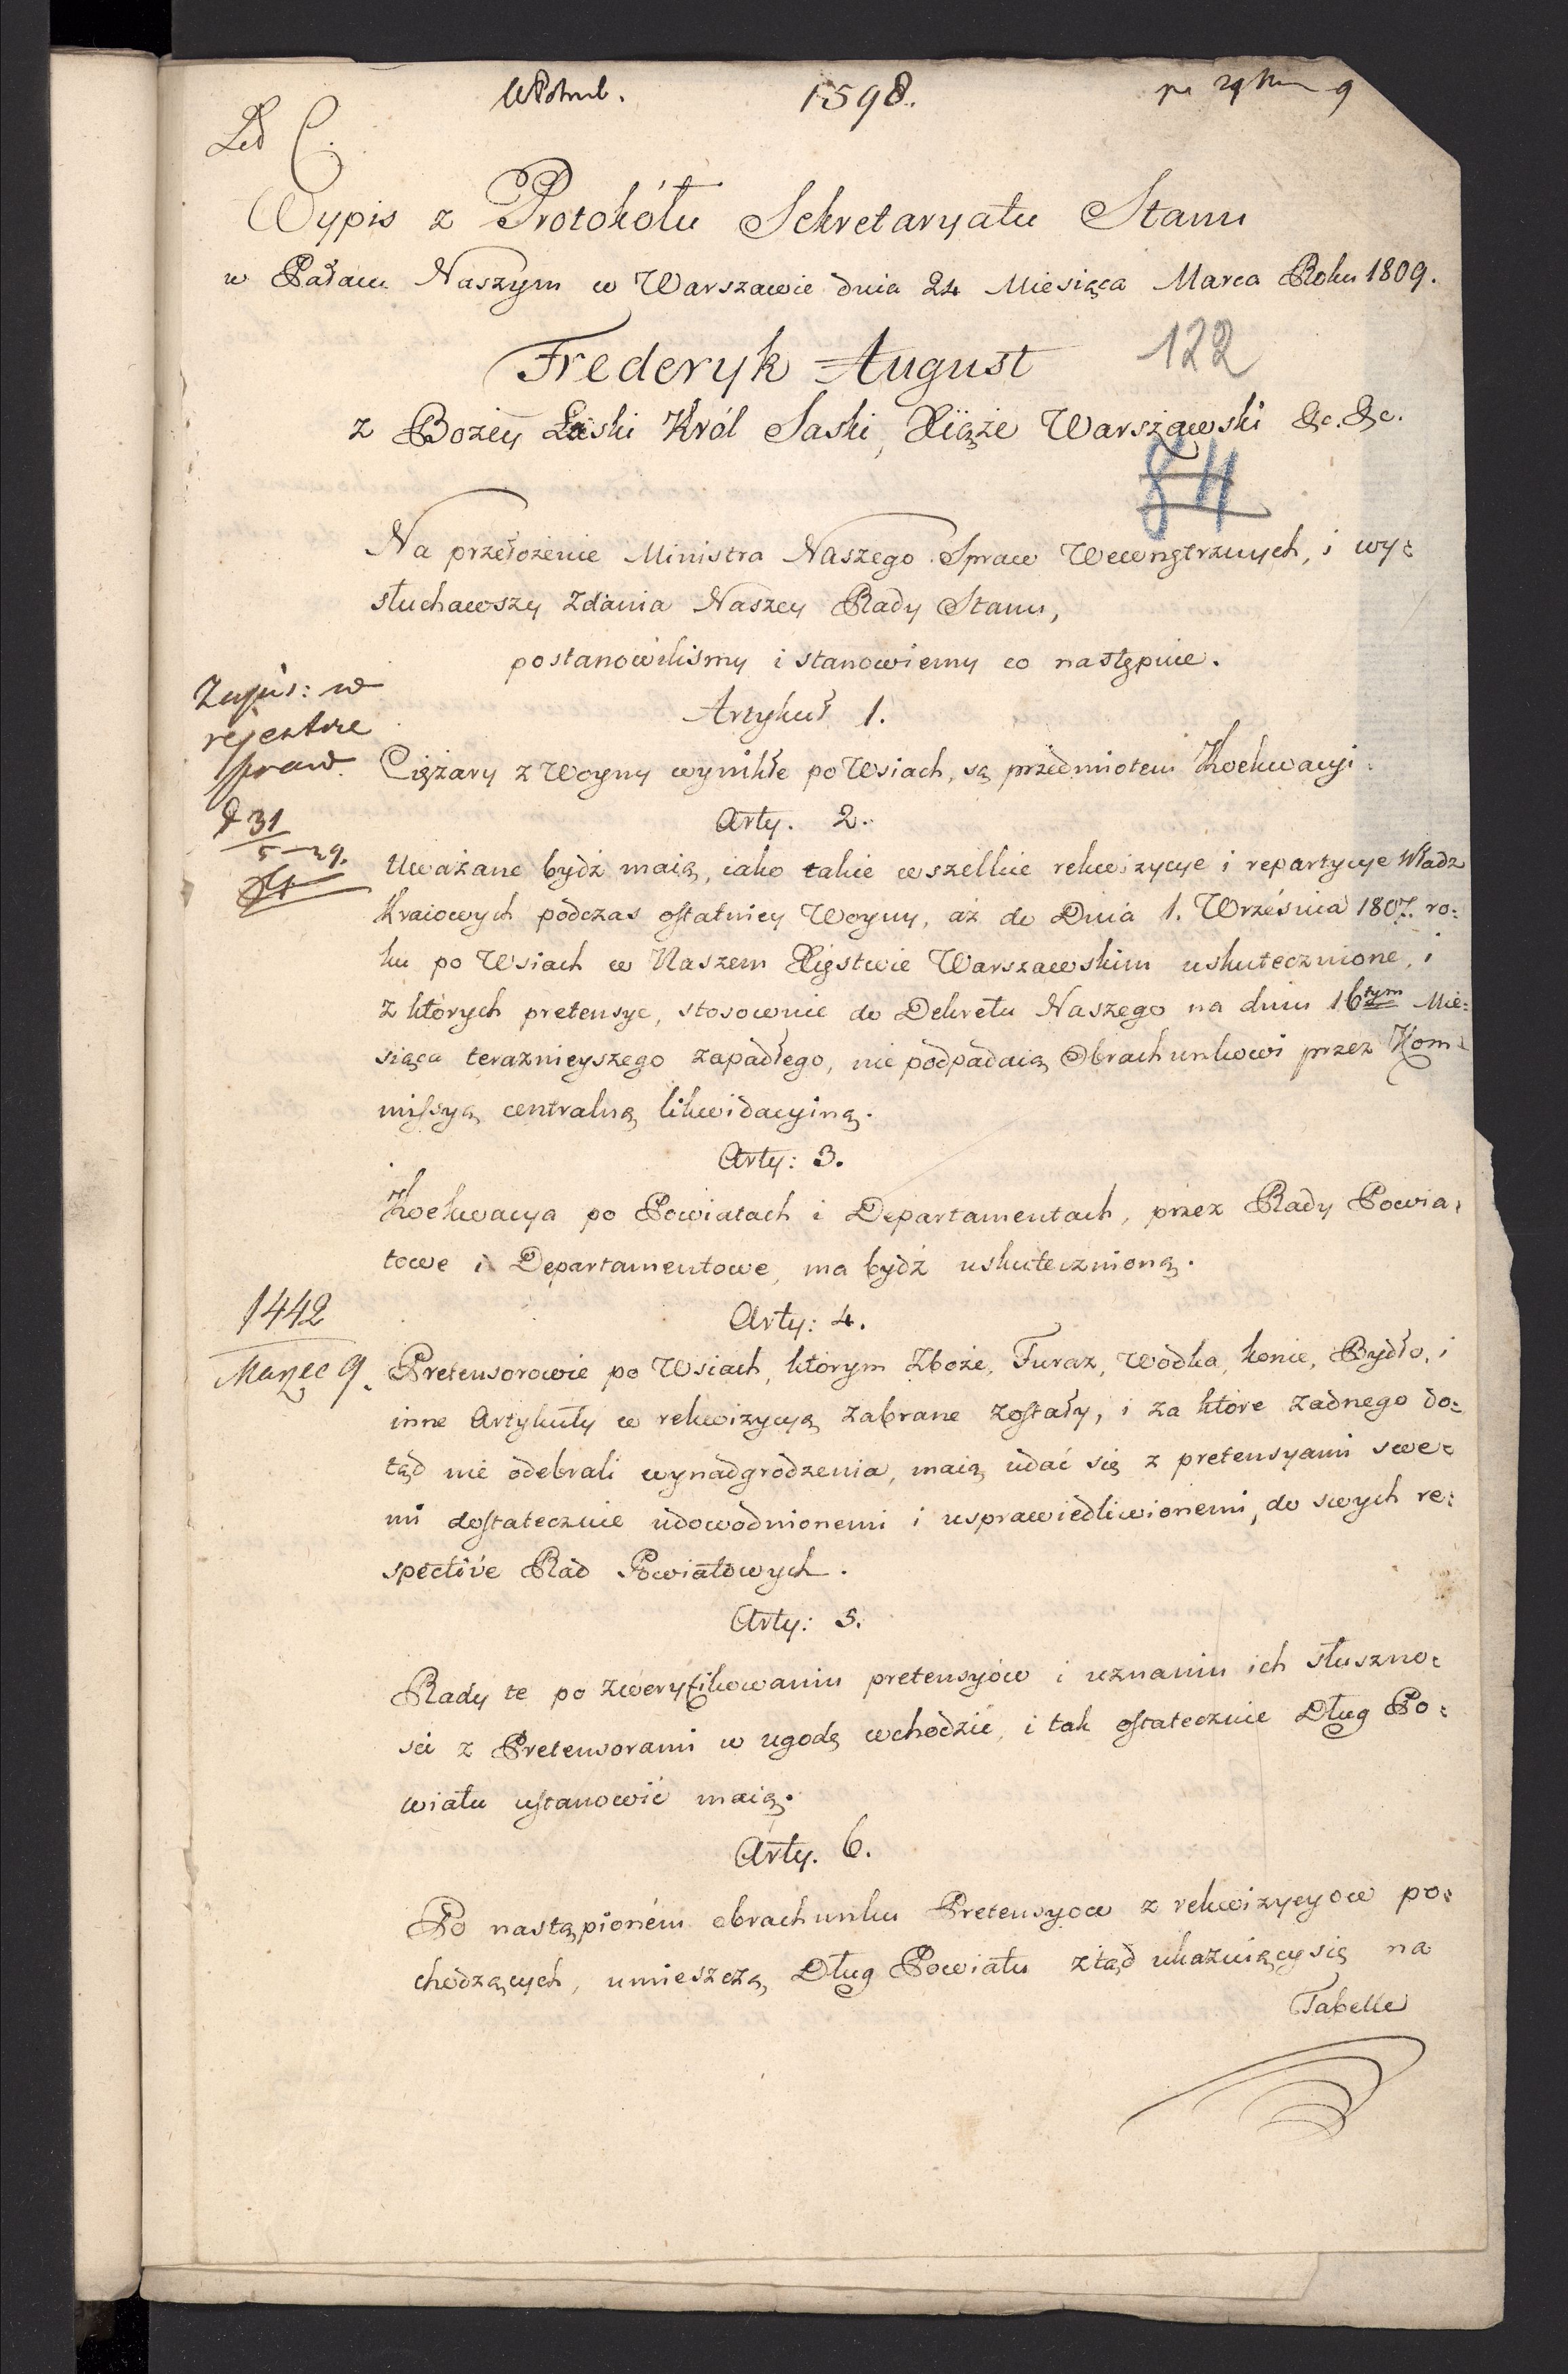 1598.
Wypis z Protokółu Sekretaryatu Stanu
w Pałacu Naszym w Warszawie dnia 24 Miesiąca Marca Roku 1809.
Frederyk August
122
z Bożey Łaski Król Saski, Xiąże Warszawski &c. &c.
84
Na przełożenie Ministra Naszego Spraw Wewnętrznych, i wy=
słuchawszy Zdania Naszey Rady Stanu,
postanowiliśmy i stanowiemy co następuie.
Zapis: w
rejestrze
spraw.
31
5 29.
Artykuł 1.
Ciężary z Woyny wynikłe po Wsiach, są przedmiotem Koekwacyi.
Arty. 2.
Uważane bydź maią, iako takie wszelkie rekwizycye i repartycye Władz
Kraiowych podczas ostatniey Woyny, aż do Dnia 1. Września 1807. ro=
ku po Wsiach w Naszem Xięstwie Warszawskim uskutecznione, i
z których pretensye, stosownie do Dekretu Naszego na dniu 16tym Mie=
siąca teraznieyszego zapadłego, nie podpadaią Obrachunkowi przez Kom=
missyą centralną likwidacyiną.
Arty: 3.
Koekwacya po Powiatach i Departamentach, przez Rady Powia=
towe i Departamentowe, ma bydź uskutecznioną.
1442
Marzec 9.
Arty: 4.
Pretensorowie po Wsiach, którym Zboże, Furaż, Wódka, konie, Bydło, i
inne Artykuły w rekwizycyą zabrane zostały, i za które żadnego do=
tąd nie odebrali wynadgrodzenia, maią udać się z pretensyami swe=
mi dostatecznie udowodnionemi i usprawiedliwionemi, do swych re=
spective Rad Powiatowych.
Arty: 5.
Rady te po zweryfikowaniu pretensyów i uznaniu ich słuszno=
ści z Pretensorami w ugodę wchodzić, i tak ostatecznie Dług Po=
wiatu ustanowić maią.
Arty. 6.
Po nastąpioném obrachunku Pretensyow z rekwizycyow po=
chodzących, umieszczą Dług Powiatu ztąd ukazuiący się na
Tabelle